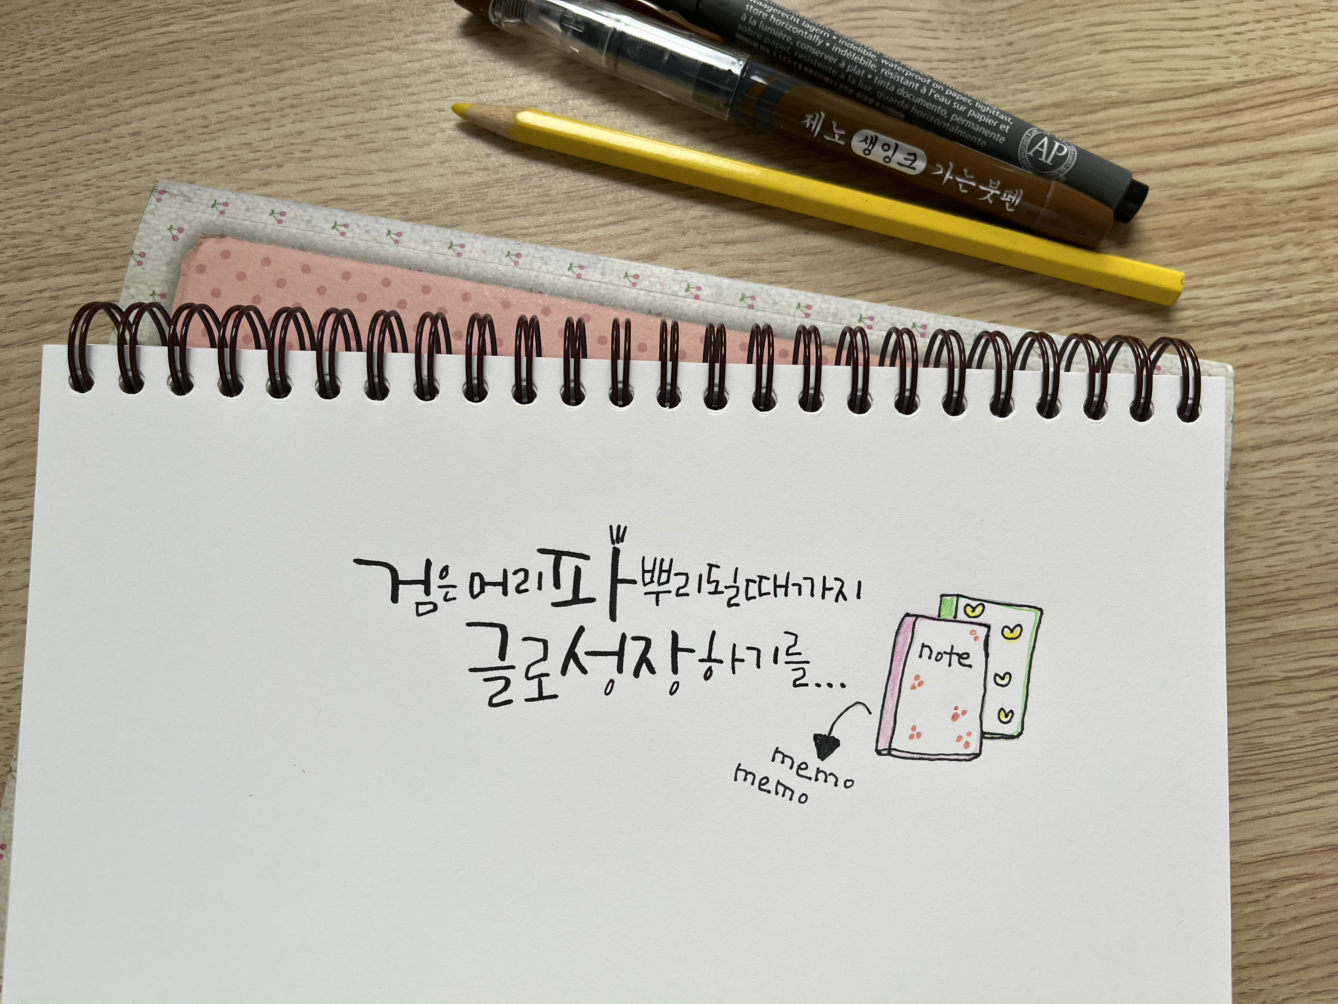 waagerecht lagern • indelible, waterproof on paper, lightfast,
store horizontally • indélébile, résistant à l'eau sur papier et
à la lumière, conserver à plat • tinta documento, permanente
sobre papel, resistente a la luz, guarda horizontalmente
AP
제노 생잉크 가는붓펜
검은 머리 파뿌리 될 때까지
글로 성장하기를...
note
memo
memo